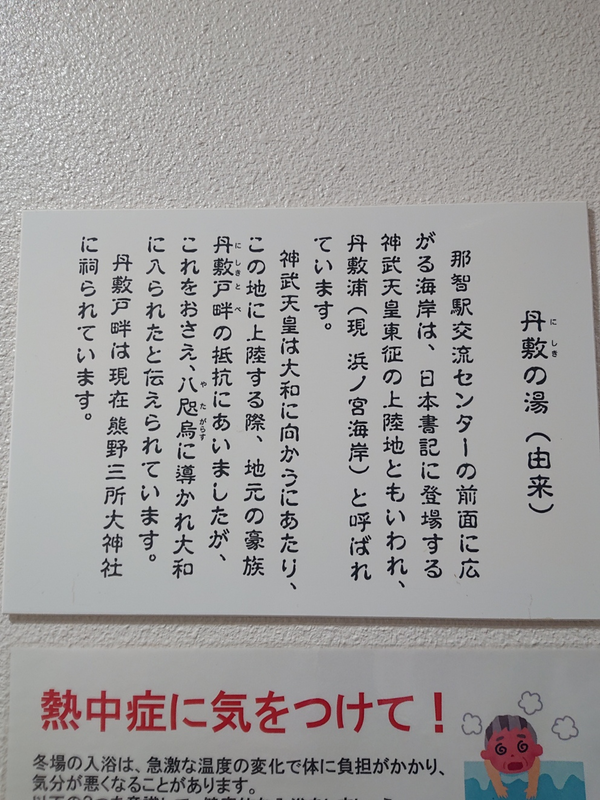 丹敷の湯（由来）
にしき
那智駅交流センターの前面に広
がる海岸は、日本書記に登場する
神武天皇東征の上陸地ともいわれ、
丹敷浦（現 浜ノ宮海岸）と呼ばれ
ています。
神武天皇は大和に向かうにあたり、
この地に上陸する際、地元の豪族
丹敷戸畔の抵抗にあいましたが、
にしきとべ
これをおさえ、八咫烏に導かれ大和
やたがらす
に入られたと伝えられています。
丹敷戸畔は現在熊野三所大神社
に祠られています。
熱中症に気をつけて！
冬場の入浴は、急激な温度の変化で体に負担がかかり、
気分が悪くなることがあります。